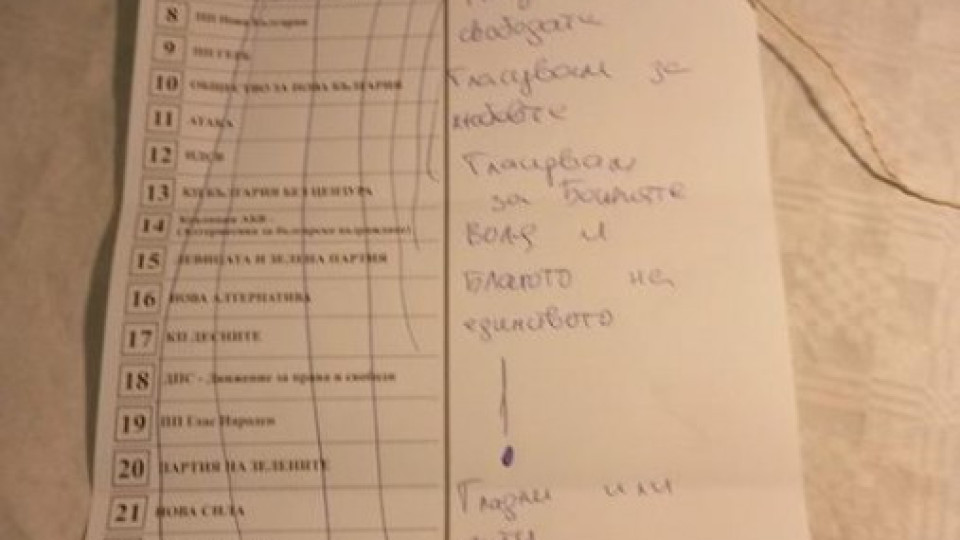 8 ПП Нова България
9 ПП ГЕРБ
10 ОБЩЕСТВО ЗА НОВА БЪЛГАРИЯ
11 АТАКА
12 НДСВ
13 КП БЪЛГАРИЯ БЕЗ ЦЕНЗУРА
14 Коалиция АБВ -
(Алтернатива за българско възраждане)
15 ЛЕВИЦАТА И ЗЕЛЕНА ПАРТИЯ
16 НОВА АЛТЕРНАТИВА
17 КП ДЕСНИТЕ
18 ДПС - Движение за права и свободи
19 ПП Глас Народен
20 ПАРТИЯ НА ЗЕЛЕНИТЕ
21 НОВА СИЛА
свободата
Гласувам за
любовта
Гласувам
за Божията
воля и
Благото на
единството
!
Гладни или